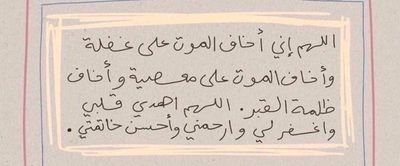 اللهم إني أخاف الموت على غفلة
وأخاف الموت على معصية وأخاف
ظلمة القبر. اللهم اهدي قلبي
واغفر لي وارحمني وأحسن خاتمتي.